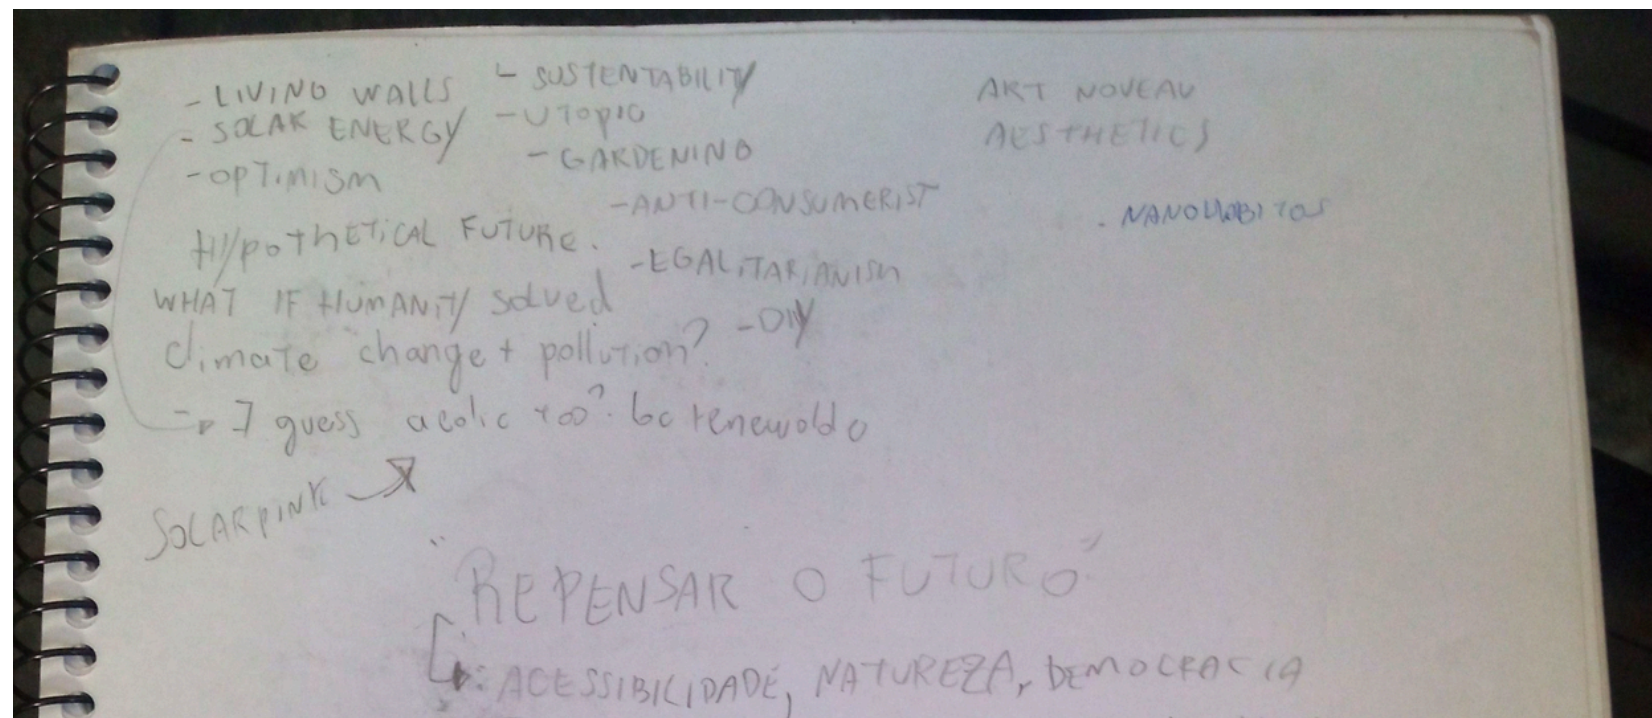 - LIVING WALLS
- SOLAR ENERGY
- OPTIMISM
- SUSTENTABILITY
- UTOPIC
- GARDENING
- ANTI-CONSUMERIST
- EGALITARIANISM
- DIY
ART NOVEAU
AESTHETICS
. NANOHABITOS
HYPOTHETICAL FUTURE.
WHAT IF HUMANITY solved
climate change + pollution?
→ I guess aeolic too? bc renewable
SOLARPUNK
"REPENSAR O FUTURO"
: ACESSIBILIDADE, NATUREZA, DEMOCRACIA